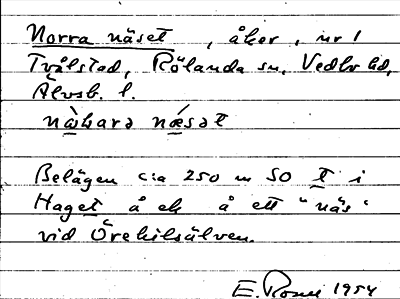 Norra näset, åker, nr 1
Tvålstad, Rölanda sn, Vedbo hd,
Älvsb. l.
Belägen c:a 250 m SO t i
Haget å ek å ett "näs"
vid Örekilsälven.
E. 1954